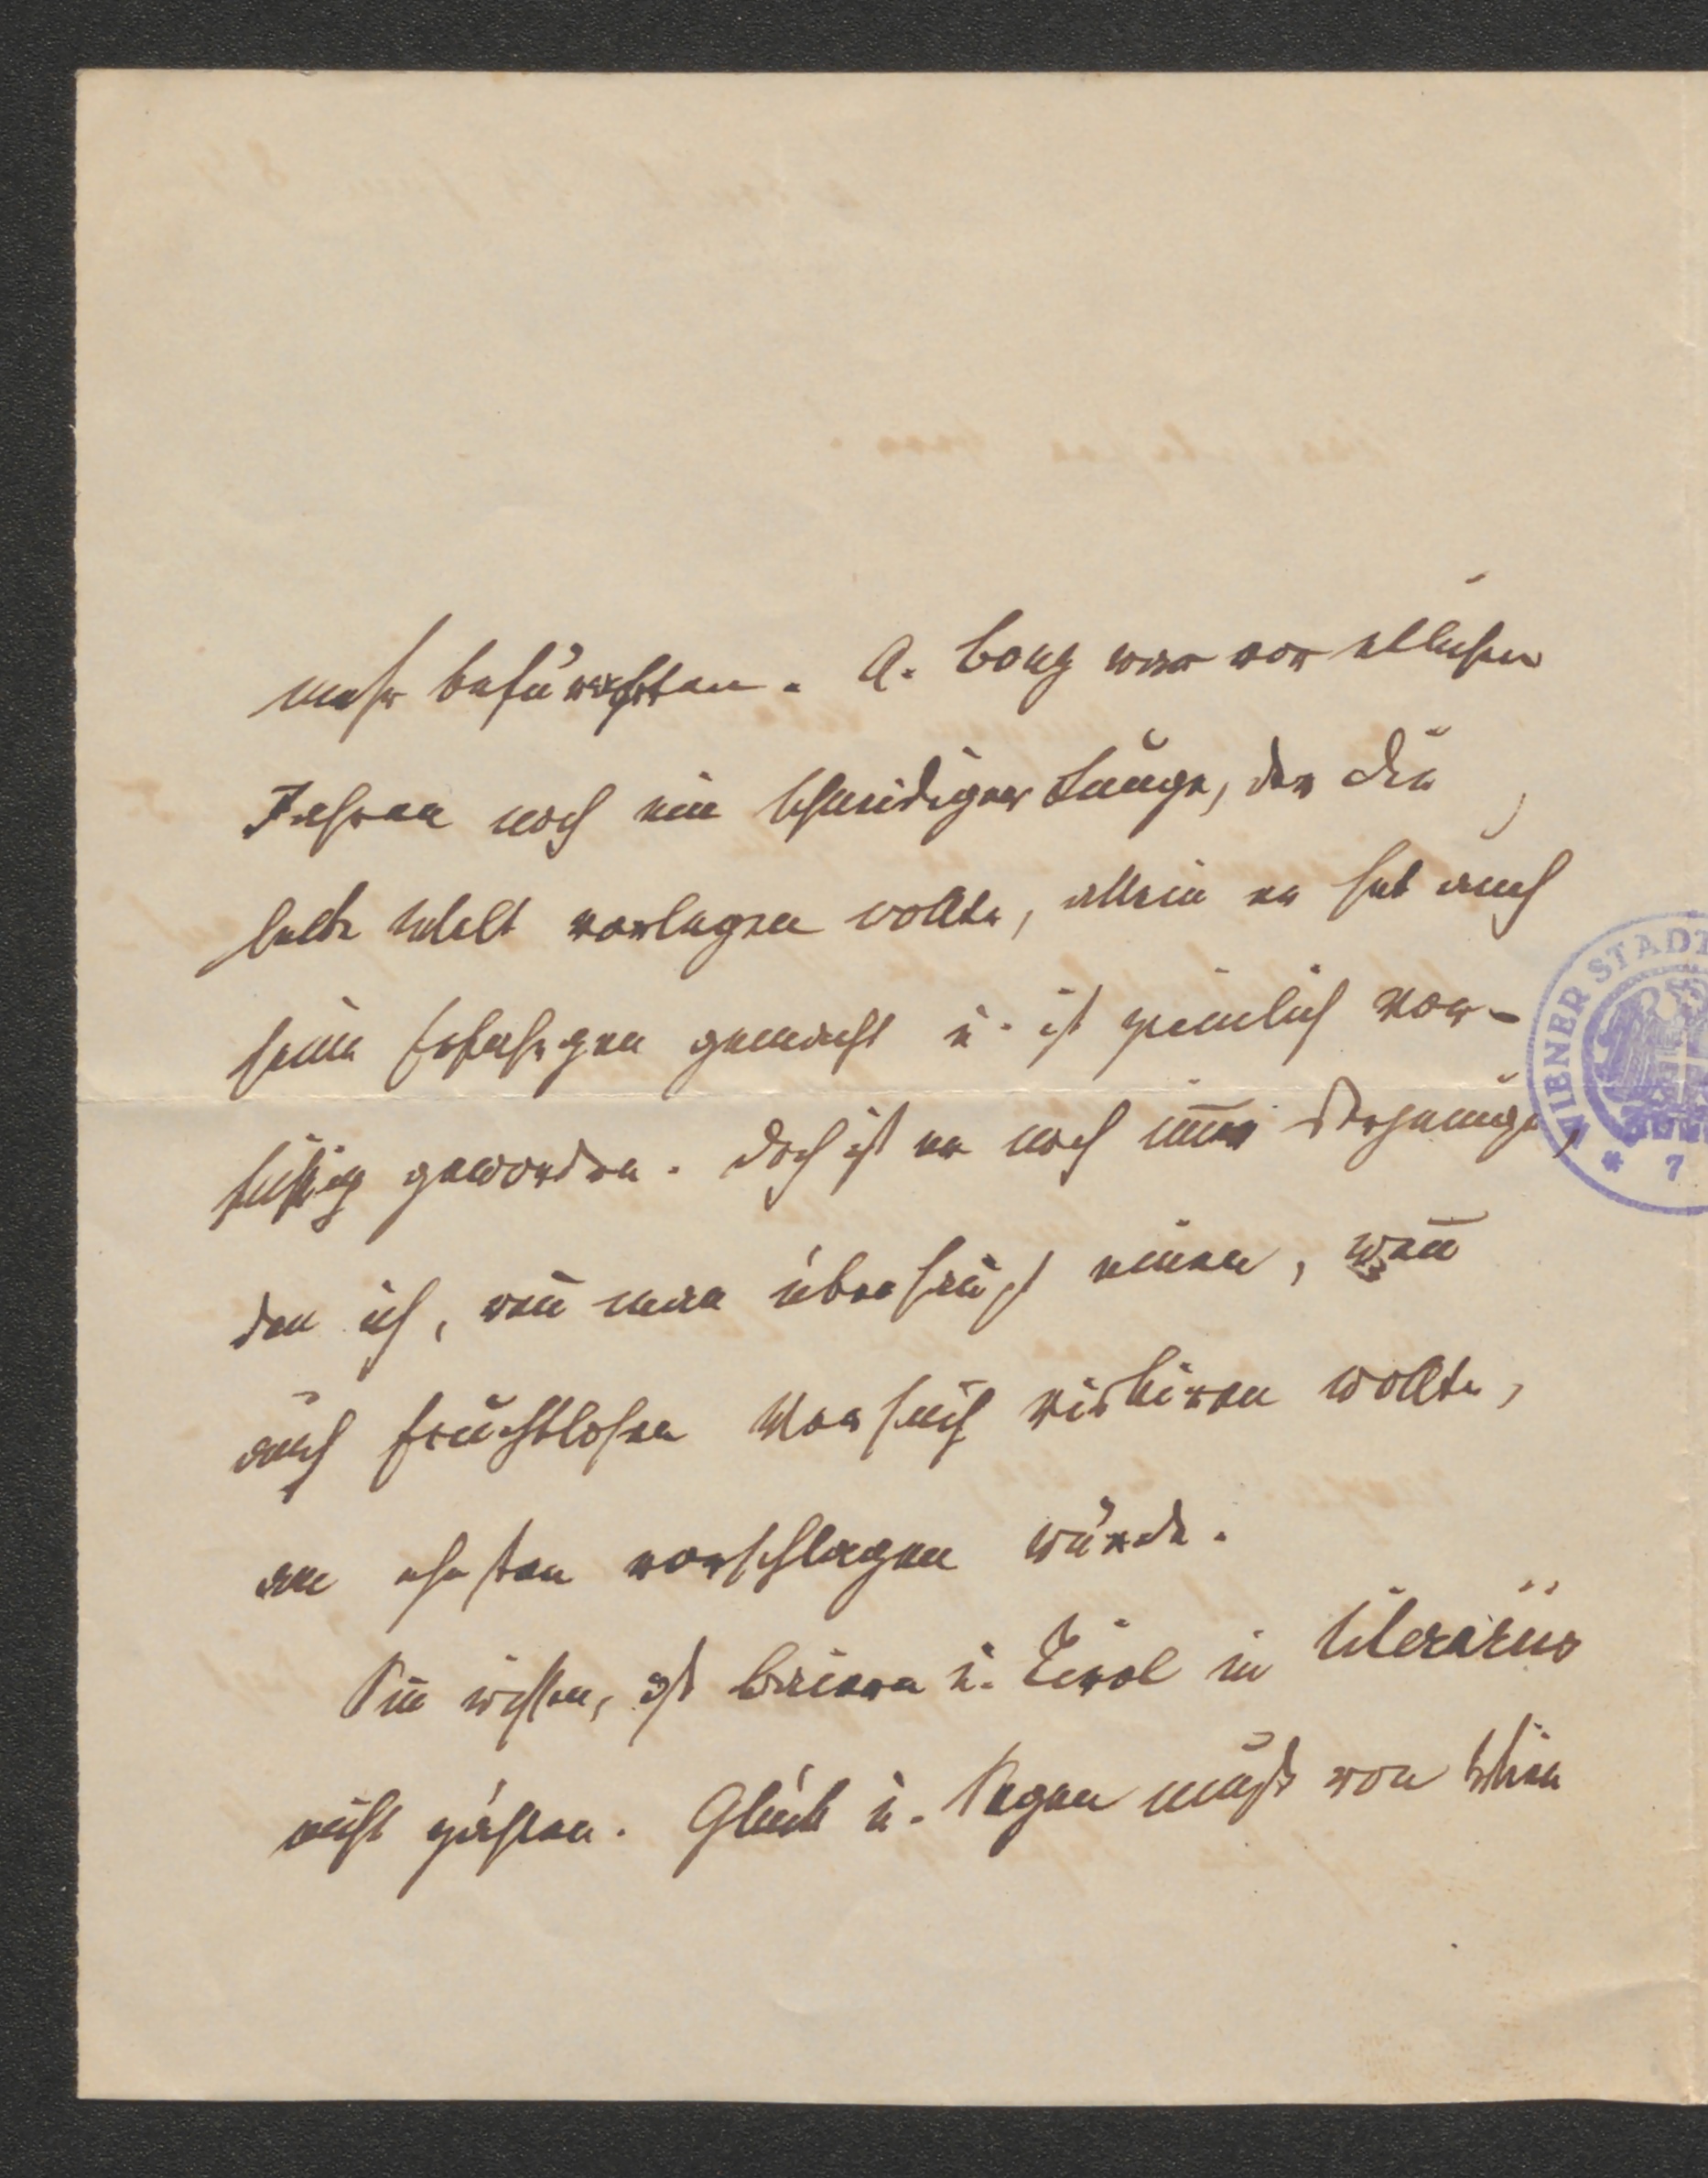 mehr befürchten. A. Bong war vor etlichen
Jahren noch ein schneidiger Junge, der die
halbe Welt verlegen wollte, allein er hat auch
seine Erfahrgen gemacht u. ist ziemlich vor-
sichtig geworden. Doch ist er noch im̅er derjenige,
den ich, wen̅ man überhaupt einen, wen̅
auch fruchtlosen Versuch riskiren wollte,
am ehesten vorschlagen würde.
Sie wissen, daß Baiern u. Tirol in literariis
nicht zählen. Glück u. Segen muß von Wien
WIENER STADT
* 7